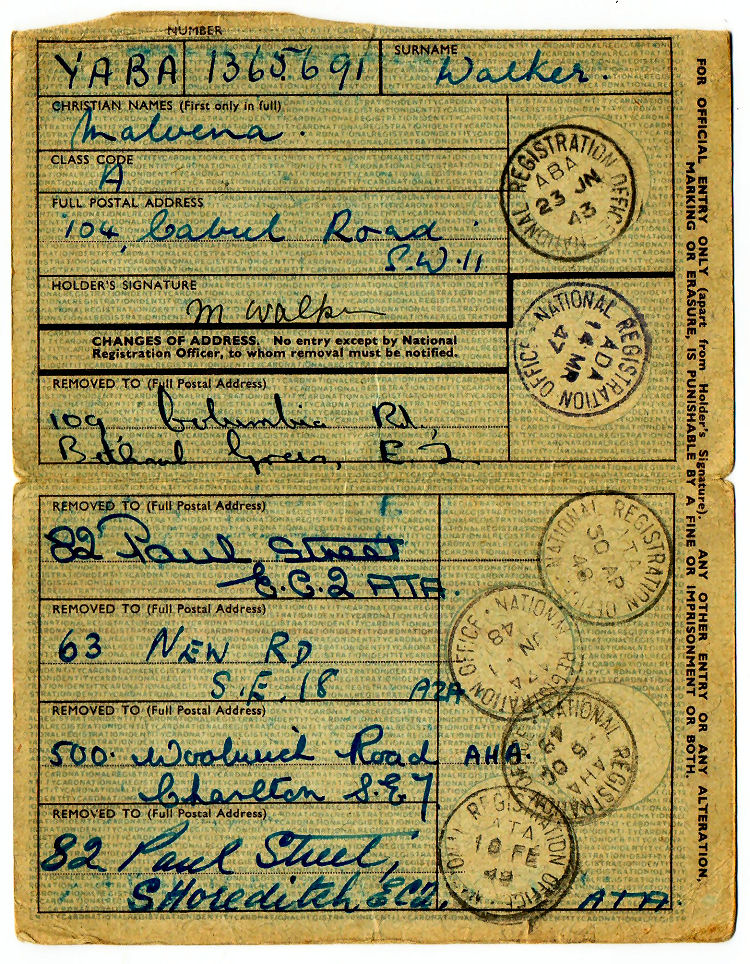 NUMBER
YABA 1365691
SURNAME
Walker.
CHRISTIAN NAMES (First only in full)
Malvena.
CLASS CODE
A
FULL POSTAL ADDRESS
104, Cabul Road
S.W.11
HOLDER'S SIGNATURE
M Walker
CHANGES OF ADDRESS. No entry except by National
Registration Officer, to whom removal must be notified.
REMOVED TO (Full Postal Address)
109, Columbia Rd.,
Bethnal Green, E.2
NATIONAL REGISTRATION OFFICE
ABA
23 JN
43
NATIONAL REGISTRATION OFFICE
ADA
14 MR
47
REMOVED TO (Full Postal Address)
82 Paul Street
E.C.2 ATA.
REMOVED TO (Full Postal Address)
63 NEW RD
S.E.18 AZA
REMOVED TO (Full Postal Address)
500 Woolwich Road AHA.
Charlton S.E7
REMOVED TO (Full Postal Address)
82 Paul Street,
SHoreditch, EC2. ATA.
NATIONAL REGISTRATION OFFICE
ATA
30 AP
48
NATIONAL REGISTRATION OFFICE
JN
48
NATIONAL REGISTRATION OFFICE
AHA
OC
NATIONAL REGISTRATION OFFICE
ATA
10 FE
49
FOR OFFICIAL ENTRY ONLY (apart from Holder's Signature). ANY OTHER ENTRY OR ANY ALTERATION,
MARKING OR ERASURE, IS PUNISHABLE BY A FINE OR IMPRISONMENT OR BOTH.